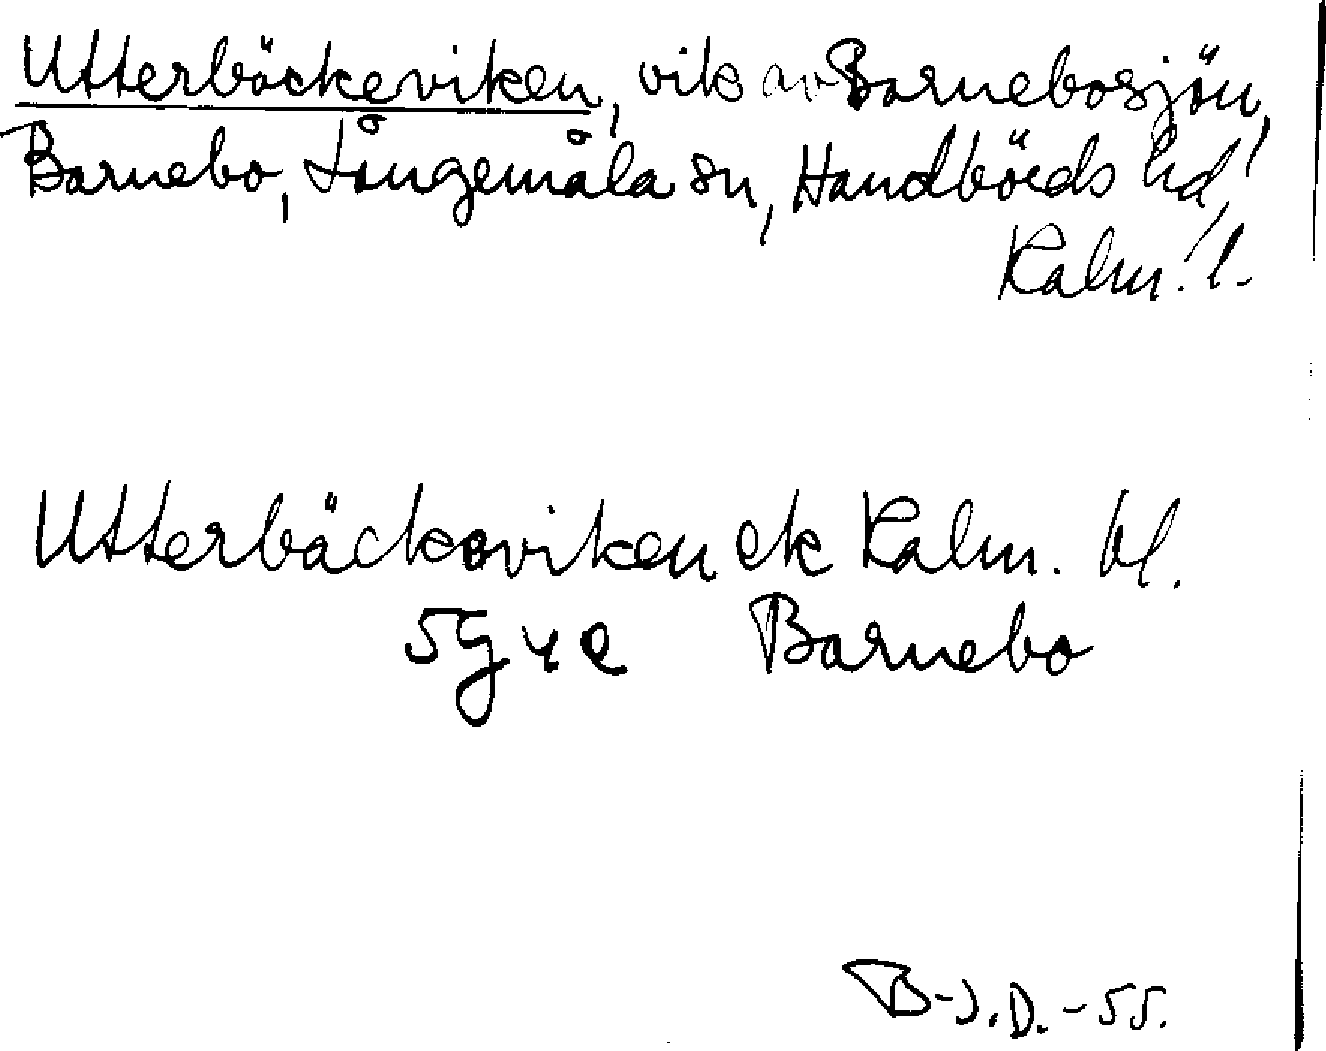 Utterbäckeviken, vik av Barnebosjön,
Barnebo, Långemåla sn, Handbörds hd,
Kalm. l.
Utterbäckeviken ek Kalm. bl.
5G 4e Barnebo
B-J.D. -55.